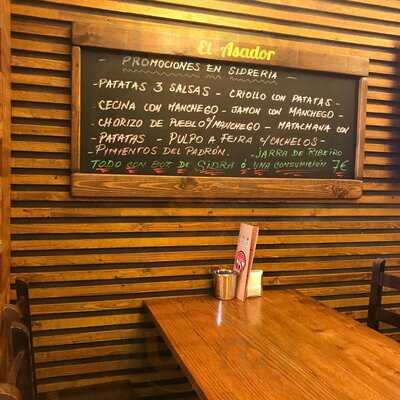 El Asador
- PROMOCIONES EN SIDRERIA -
-PATATAS 3 SALSAS - CRIOLLO CON PATATAS -
CECINA CON MANCHEGO - JAMON CON MANCHEGO -
- CHORIZO DE PUEBLO %MANCHEGO - MATACHANA CON
- PATATAS - PULPO A FEIRA C/CACHELOS -
-PIMIENTOS DEL PADRÓN. - JARRA DE RIBEIRO
TODO CON BOT DE SIDRA Ó UNA CONSUMICIÓN 7€